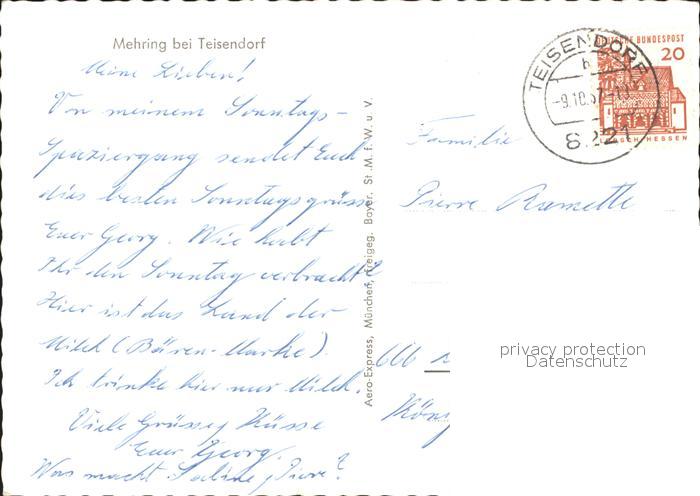 Mehring bei Teisendorf
Meine Lieben!
Von meinem Sonntags-
spaziergang sendet Euch
die besten Sonntagsgrüsse
Euer Georg. Wie habt
Ihr den Sonntag verbracht?
Hier ist das Land der
Milch (Bären-Marke).
Ich trinke hier nur Milch.
Viele Grüsse, Küsse
Euer Georg.
Was macht Sabine, Pierre?
Aero-Express, München, freigeg. Bayer. St. M. f. W. u. V.
TEISENDORF
b
-9.10.67-10
8221
DEUTSCHE BUNDESPOST
20
HESSEN
Familie
Pierre Ramette
666
privacy protection
Datenschutz